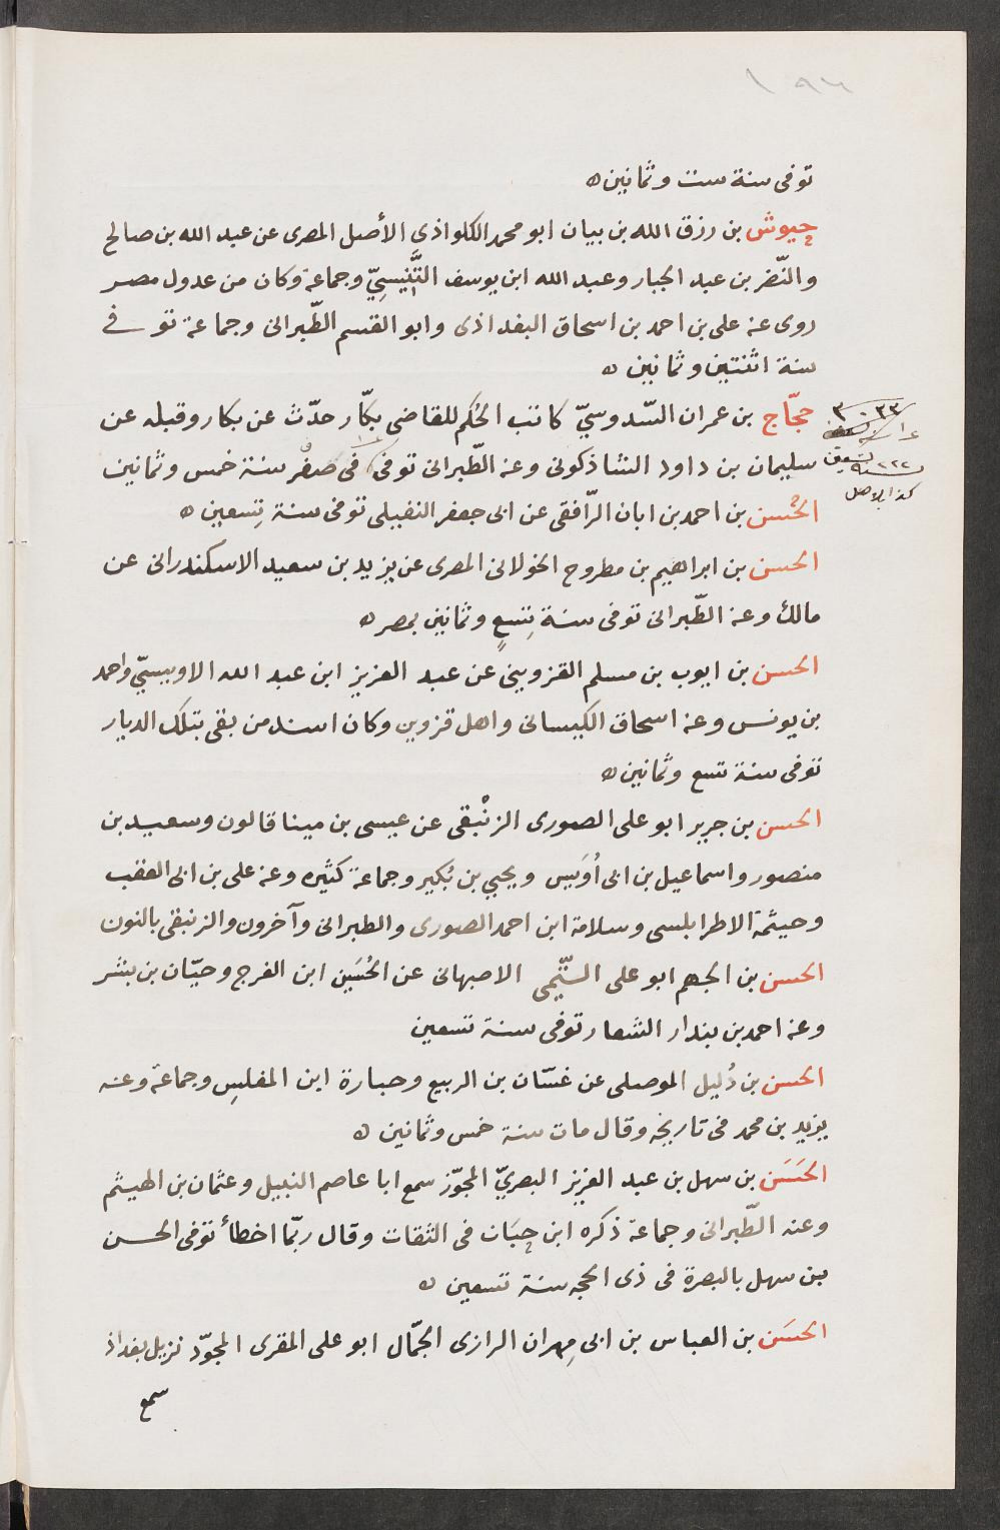 ١٩٦
توفى سنة ست وثمانين ه
جيوش بن رزق الله بن بيان ابو محمد الكلواذى الأصل المصرى عن عبد الله بن صالح
والنّضر بن عبد الجبار وعبد الله ابن يوسف التَّنِّيسِيّ وجماعة وكان من عدول مصر
روى عنه على بن احمد بن اسحاق البغداذى وابو القسم الطّبرانى وجماعة توفى
سنة اثنتين وثمانين ه
حجّاج بن عمران السّدوسيّ كاتب الحُكم للقاضى بكّار حدّث عن بكار وقبله عن
سليمان بن داود الشاذكونى وعنه الطّبرانى توفى فى صفر سنة خمس وثمانين
الحُسن بن احمد بن ابان الرّافقى عن ابى جعفر النفيلى توفى سنة تِسعين ه
الحسن بن ابراهيم بن مطروح الخولانى المصرى عن يزيد بن سعيد الاسكندرانى عن
مالك وعنه الطّبرانى توفى سنة تِسعٍ وثمانين بمصر ه
الحسن بن ايوب بن مسلم القزوينى عن عبد العزيز ابن عبد الله الاويسيّ واحمد
بن يونس وعنه اسحاق الكيسانى واهل قزوين وكان اسند من بقى بتلك الديار
توفى سنة تسع وثمانين ه
الحسن بن جرير ابو على الصورى الزنْبقى عن عيسى بن مينا قالون وسعيد بن
منصور واسماعيل بن ابى اُوَيس ويحيى بن بُكير وجماعة كثيره وعنه على بن ابى العقب
وحيثمة الاطرابلسى وسلامة ابن احمد الصورى والطبرانى وآخرون والزنبقى بالنون
الحسن بن الجهم ابو على التّيمى الاصبهانى عن الحُسَين ابن الفرج وحيّان بن بشر
وعنه احمد بن بندار الشعار توفى سنة تسعين
الحسن بن دُليل الموصلى عن غسّان بن الربيع وحبارة ابن المغلّسِ وجماعة وعنه
يزيد بن محمد فى تاريخه وقال مات سنة خمس وثمانين ه
الحَسَن بن سهل بن عبد العزيز البصريّ المجوّز سمع ابا عاصم النبيل وعثمان بن الهيثم
وعنه الطّبرانى وجماعة ذكره ابن حِبَان فى الثقات وقال ربّما اخطأ توفى الحسن
بن سهل بالبصرة فى ذى الحجه سنة تسعين ه
الحسَن بن العباس بن ابى مِهران الرازى الجمّال ابو على المقرى المجوّد نزيل بغداذ
سمع
كذا بالاصل